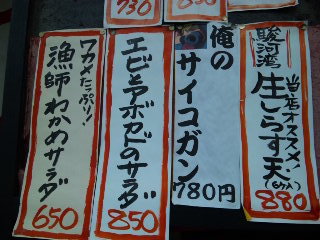 730
850
駿河湾
当店オススメ!
生しらす天
(6ヶ入)
880
俺の
サイコガン
780円
エビとアボカドのサラダ
850
ワカメたっぷり!
漁師わかめサラダ
650